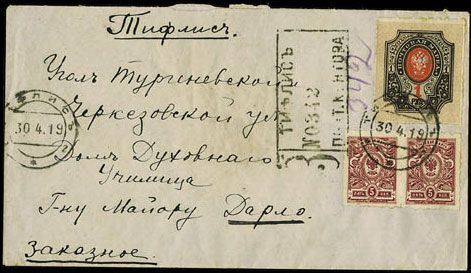 Тифлисъ.
Уголъ Тургеневской
Черкезовской ул
домъ Духовнаго
Училища
Г-ну Маiору Дарло.
Заказное.
ТИФЛИСЪ
З №342
342
ТИФЛИСЪ
30 4.19
30 4.19
1
РУБ
5 5
КОП. КОП.